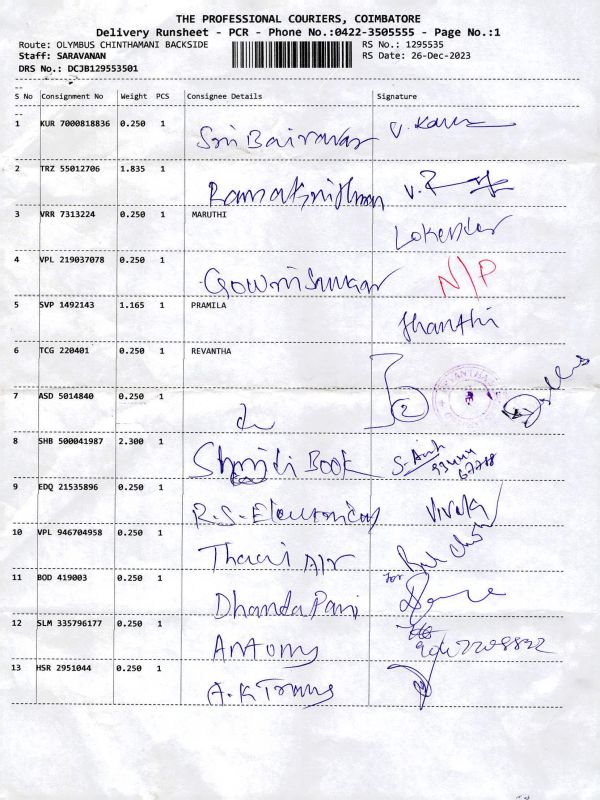 THE PROFESSIONAL COURIERS, COIMBATORE
Delivery Runsheet - PCR - Phone No.:0422-3505555 - Page No.:1
Route: OLYMBUS CHINTHAMANI BACKSIDE RS No.: 1295535
Staff: SARAVANAN RS Date: 26-Dec-2023
DRS No.: DCJB129553501
--
S No Consignment No Weight PCS Consignee Details Signature
--
1 KUR 7000818836 0.250 1 Sri Bairavar
2 TRZ 55012706 1.835 1 Ramakrishnan
3 VRR 7313224 0.250 1 MARUTHI
4 VPL 219037078 0.250 1 Gowrishankar N/P
5 SVP 1492143 1.165 1 PRAMILA
6 TCG 220401 0.250 1 REVANTHA
7 ASD 5014840 0.250 1 do 2
8 SHB 500041987 2.300 1 Book
9 EDQ 21535896 0.250 1 R.S. Electronics Vivek
10 VPL 946704958 0.250 1 Thaai Air
11 BOD 419003 0.250 1 DhandaPani for
12 SLM 335796177 0.250 1 Antony
13 HSR 2951044 0.250 1 A.K Trans